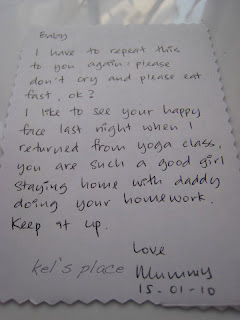 Enby
I have to repeat this
to you again: please
don't cry and please eat
fast, ok?
I like to see your happy
face last night when I
returned from yoga class,
you are such a good girl
staying home with daddy
doing your homework.
Keep it up.
Love
Mummy
kel's place
15-01-10